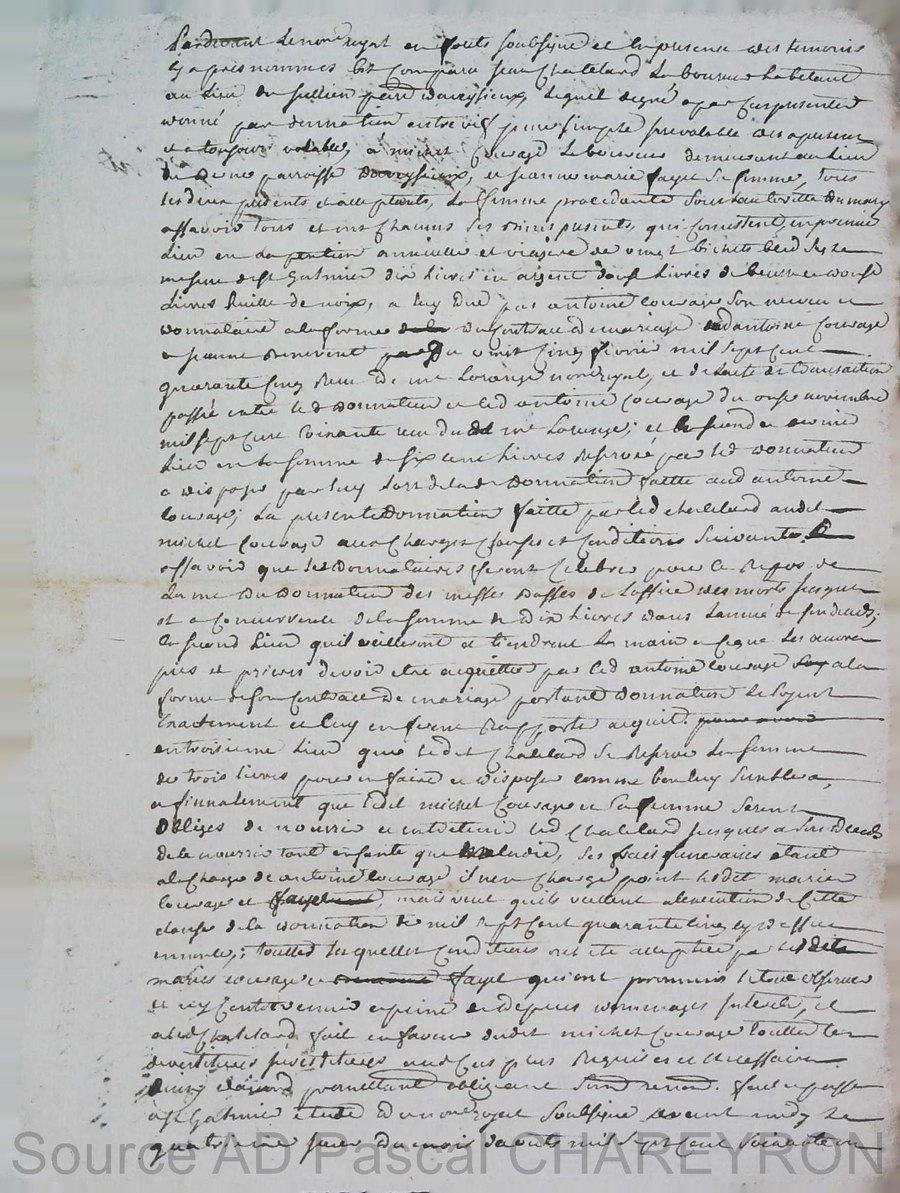 Pardevant le no.re royal en forets soubsigné et en presence des temoins
cy apres nommés fut comparu Jean Chatelard laboureur habitant
au lieu du Jullien parr.e d'aveysieux, lequel de gré a par ces presentes
donné par donnation entre vifs pure simple irrevalable des a present
et a toujours valable, a michel Couvage laboureur demeurant au lieu
de parroisse d'aveysieux, et jeanne marie fayel sa femme, tous
les deux presents et acceptants, la femme procedante sous l'authorité du mary
assavoir tous et uns chacuns ses biens presents, qui consistent, en premier
lieu en la pention annuelle et viagere de vingt bichets bled seigle
mesure de S.t Galmier dix livres en argent douse livres de beurre et douse
livres huille de noix, a luy due par antoine Couvage son neveu et
donnataire a la forme du Contract de mariage dud antoine Couvage
et jeanne Benevent du vingt cinq fevrier mil sept cent
quarante cinq reçu de me Lorange no.re royal, et de l'acte de transaction
passée entre led donnateur et led antoine Couvage du onse novembre
mil sept cent soixante reçu dud me Lorange; et le second et dernier
lieu en la somme de six cent livres reservée par led donnateur
a disposer par luy lors de lad donnation faitte aud antoine
Couvage; la presente donnation faitte par led chatelard audit
michel Couvage aux charges clauses et conditions suivantes
assavoir que les donnataires feront celebrer pour le repos de
l'ame du donnateur des messes basses de l'office des morts jusques
et a concurrence de la somme de dix livres dans l'année de son deceds;
le second lieu quil veilleront et tiendront la main a ce que les œuvres
pies et prieres devoir etre acquittées par led antoine Couvage a la
forme de son contract de mariage portant donnation le soyent
exactement et luy en feront rapporter acquit.
en troisieme lieu que ledit Chatelard se reserve la somme
de trois livres pour en faire et disposer comme bon luy semblera,
et finnalement que ledit michel Couvage et sa femme seront
obligés de nourrir et entretenir led Chatelard jusques a son deceds
de le nourrir tant en santé que maladie, ses frais funeraires etant
a la charge de antoine Couvage il n'en charge point lesdit mariés
Couvage et fayel, mais veut qu'ils veillent a l'execution de cette
clause de la donnation de mil sept cent quarante cinq cy dessus
enoncée; touttes lesquelles conditions ont eté acceptées par lesdits
mariés Couvage et fayel qui ont prommis le tout observer
et n'y contrevenir a peine de tous depens dommages interets, et
a led Chatelard fait en faveur dudit michel Couvage touttes les
devestitures investitures en ce cas plus requises et necessaires
promettant obligeant renonc.t. fait et passé
a S.t Galmier etude du no.re royal soubsigné avant midy le
quatorsieme jour du mois d'aoust mil sept cent soixante un
Source AD Pascal CHAREYRON